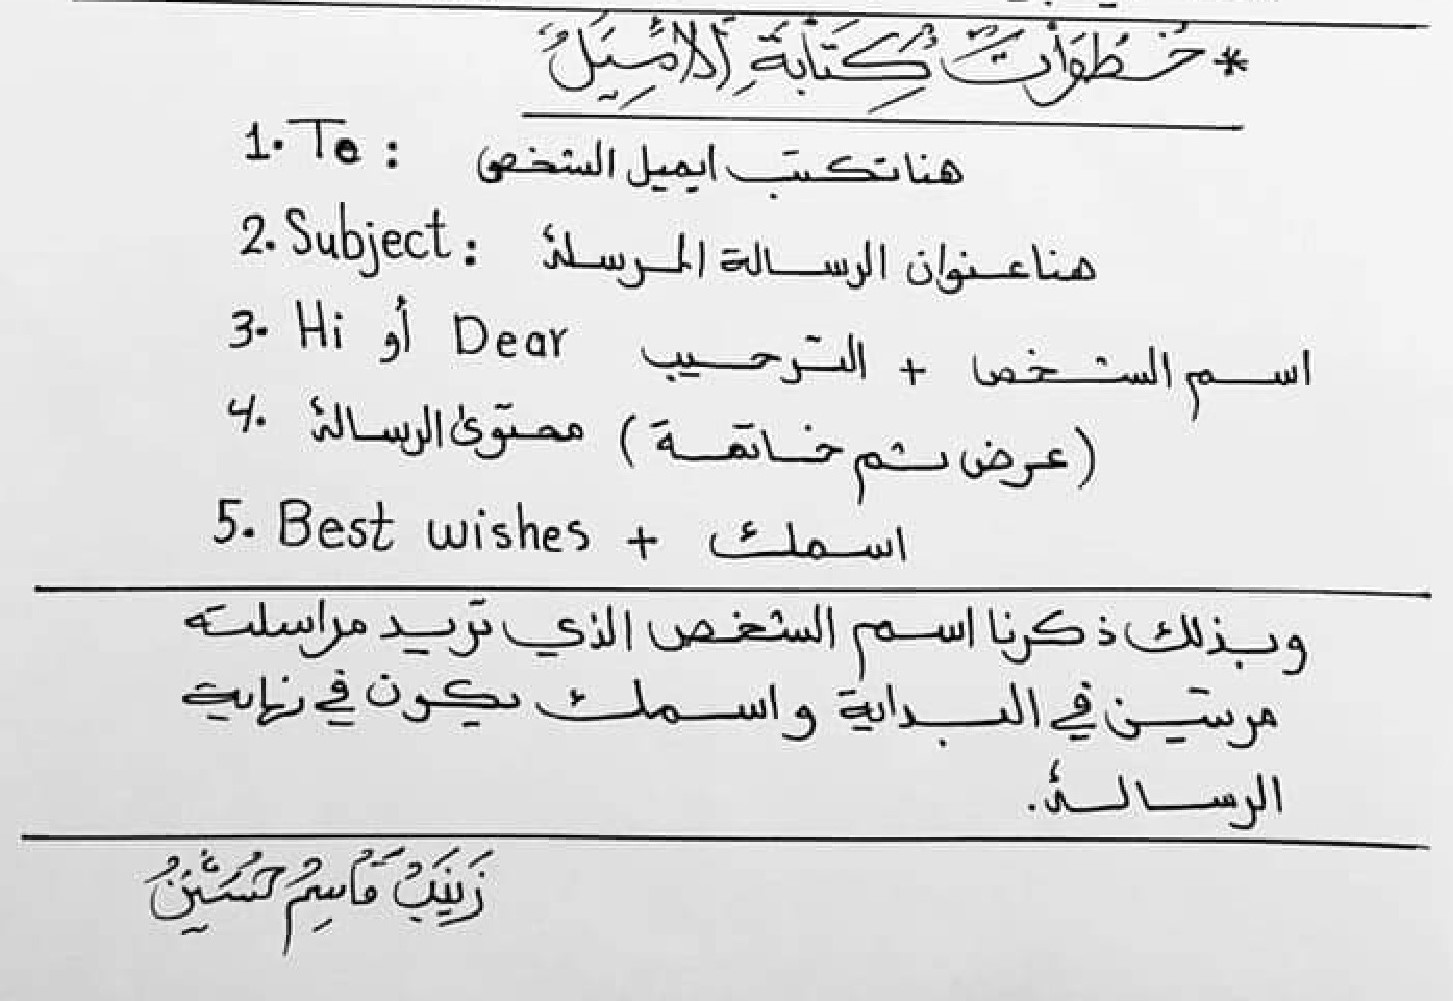 * خُطُوَاتُ كِتَابَةِ الامِيَلُ
1. To : هنا تكتب ايميل الشخص
2. Subject : هنا عنوان الرسالة المرسلة
3. Hi أو Dear الترحيب + اسم الشخص
4. محتوى الرسالة (عرض ثم خاتمة)
5. Best wishes + اسمك
وبذلك ذكرنا اسم الشخص الذي تريد مراسلته
مرتين في البداية واسمك يكون في نهاية
الرسالة.
زَينَبُ قَاسِم حُسَين